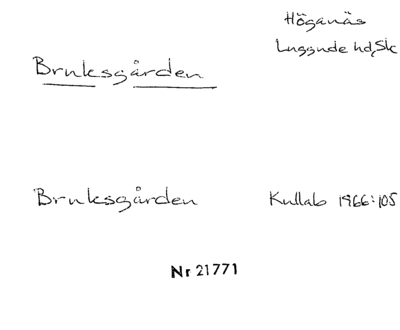 Höganäs
Luggude hd, Sk
Bruksgården
Bruksgården Kullab 1966:105
Nr 21771